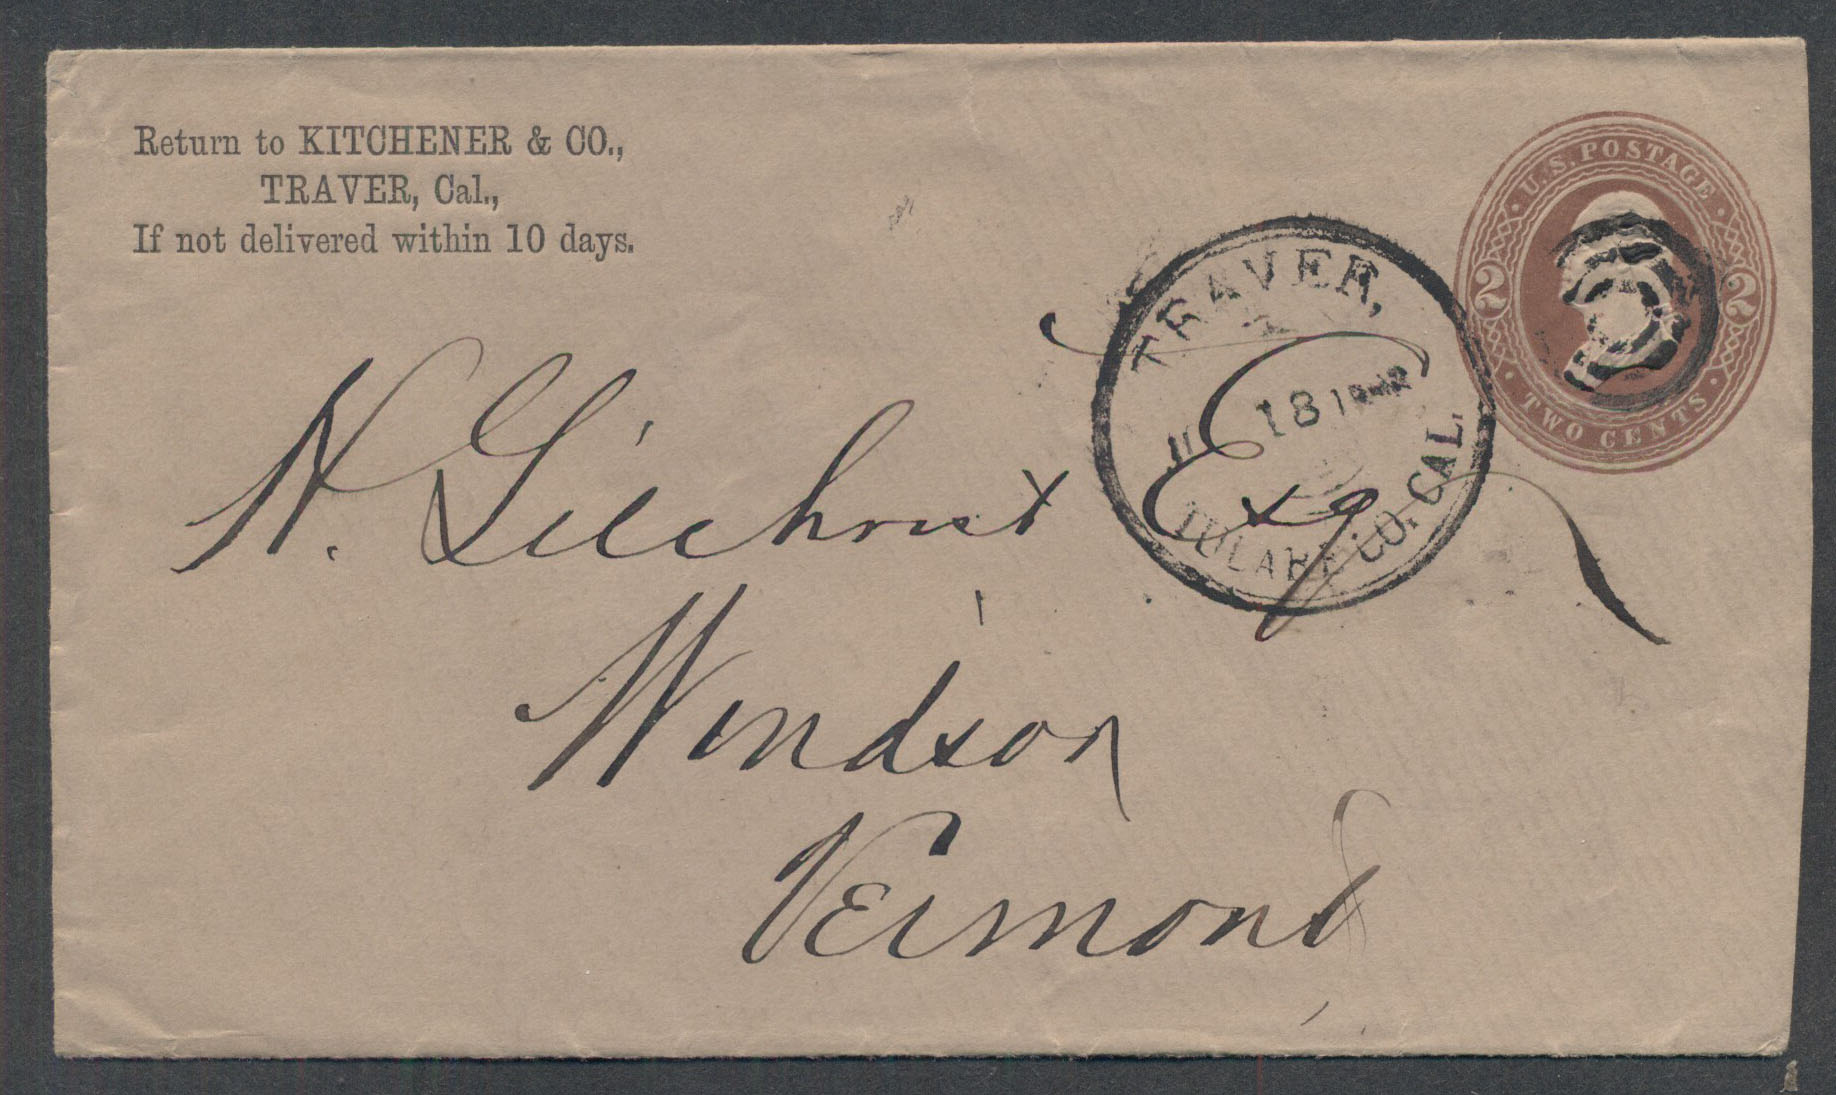 Return to KITCHENER & CO.,
TRAVER, Cal.,
If not delivered within 10 days.
U.S. POSTAGE
2 2
TWO CENTS
TRAVER,
18
TULARE CO. CAL.
H. Gilchrist Esq
Windsor
Vermont